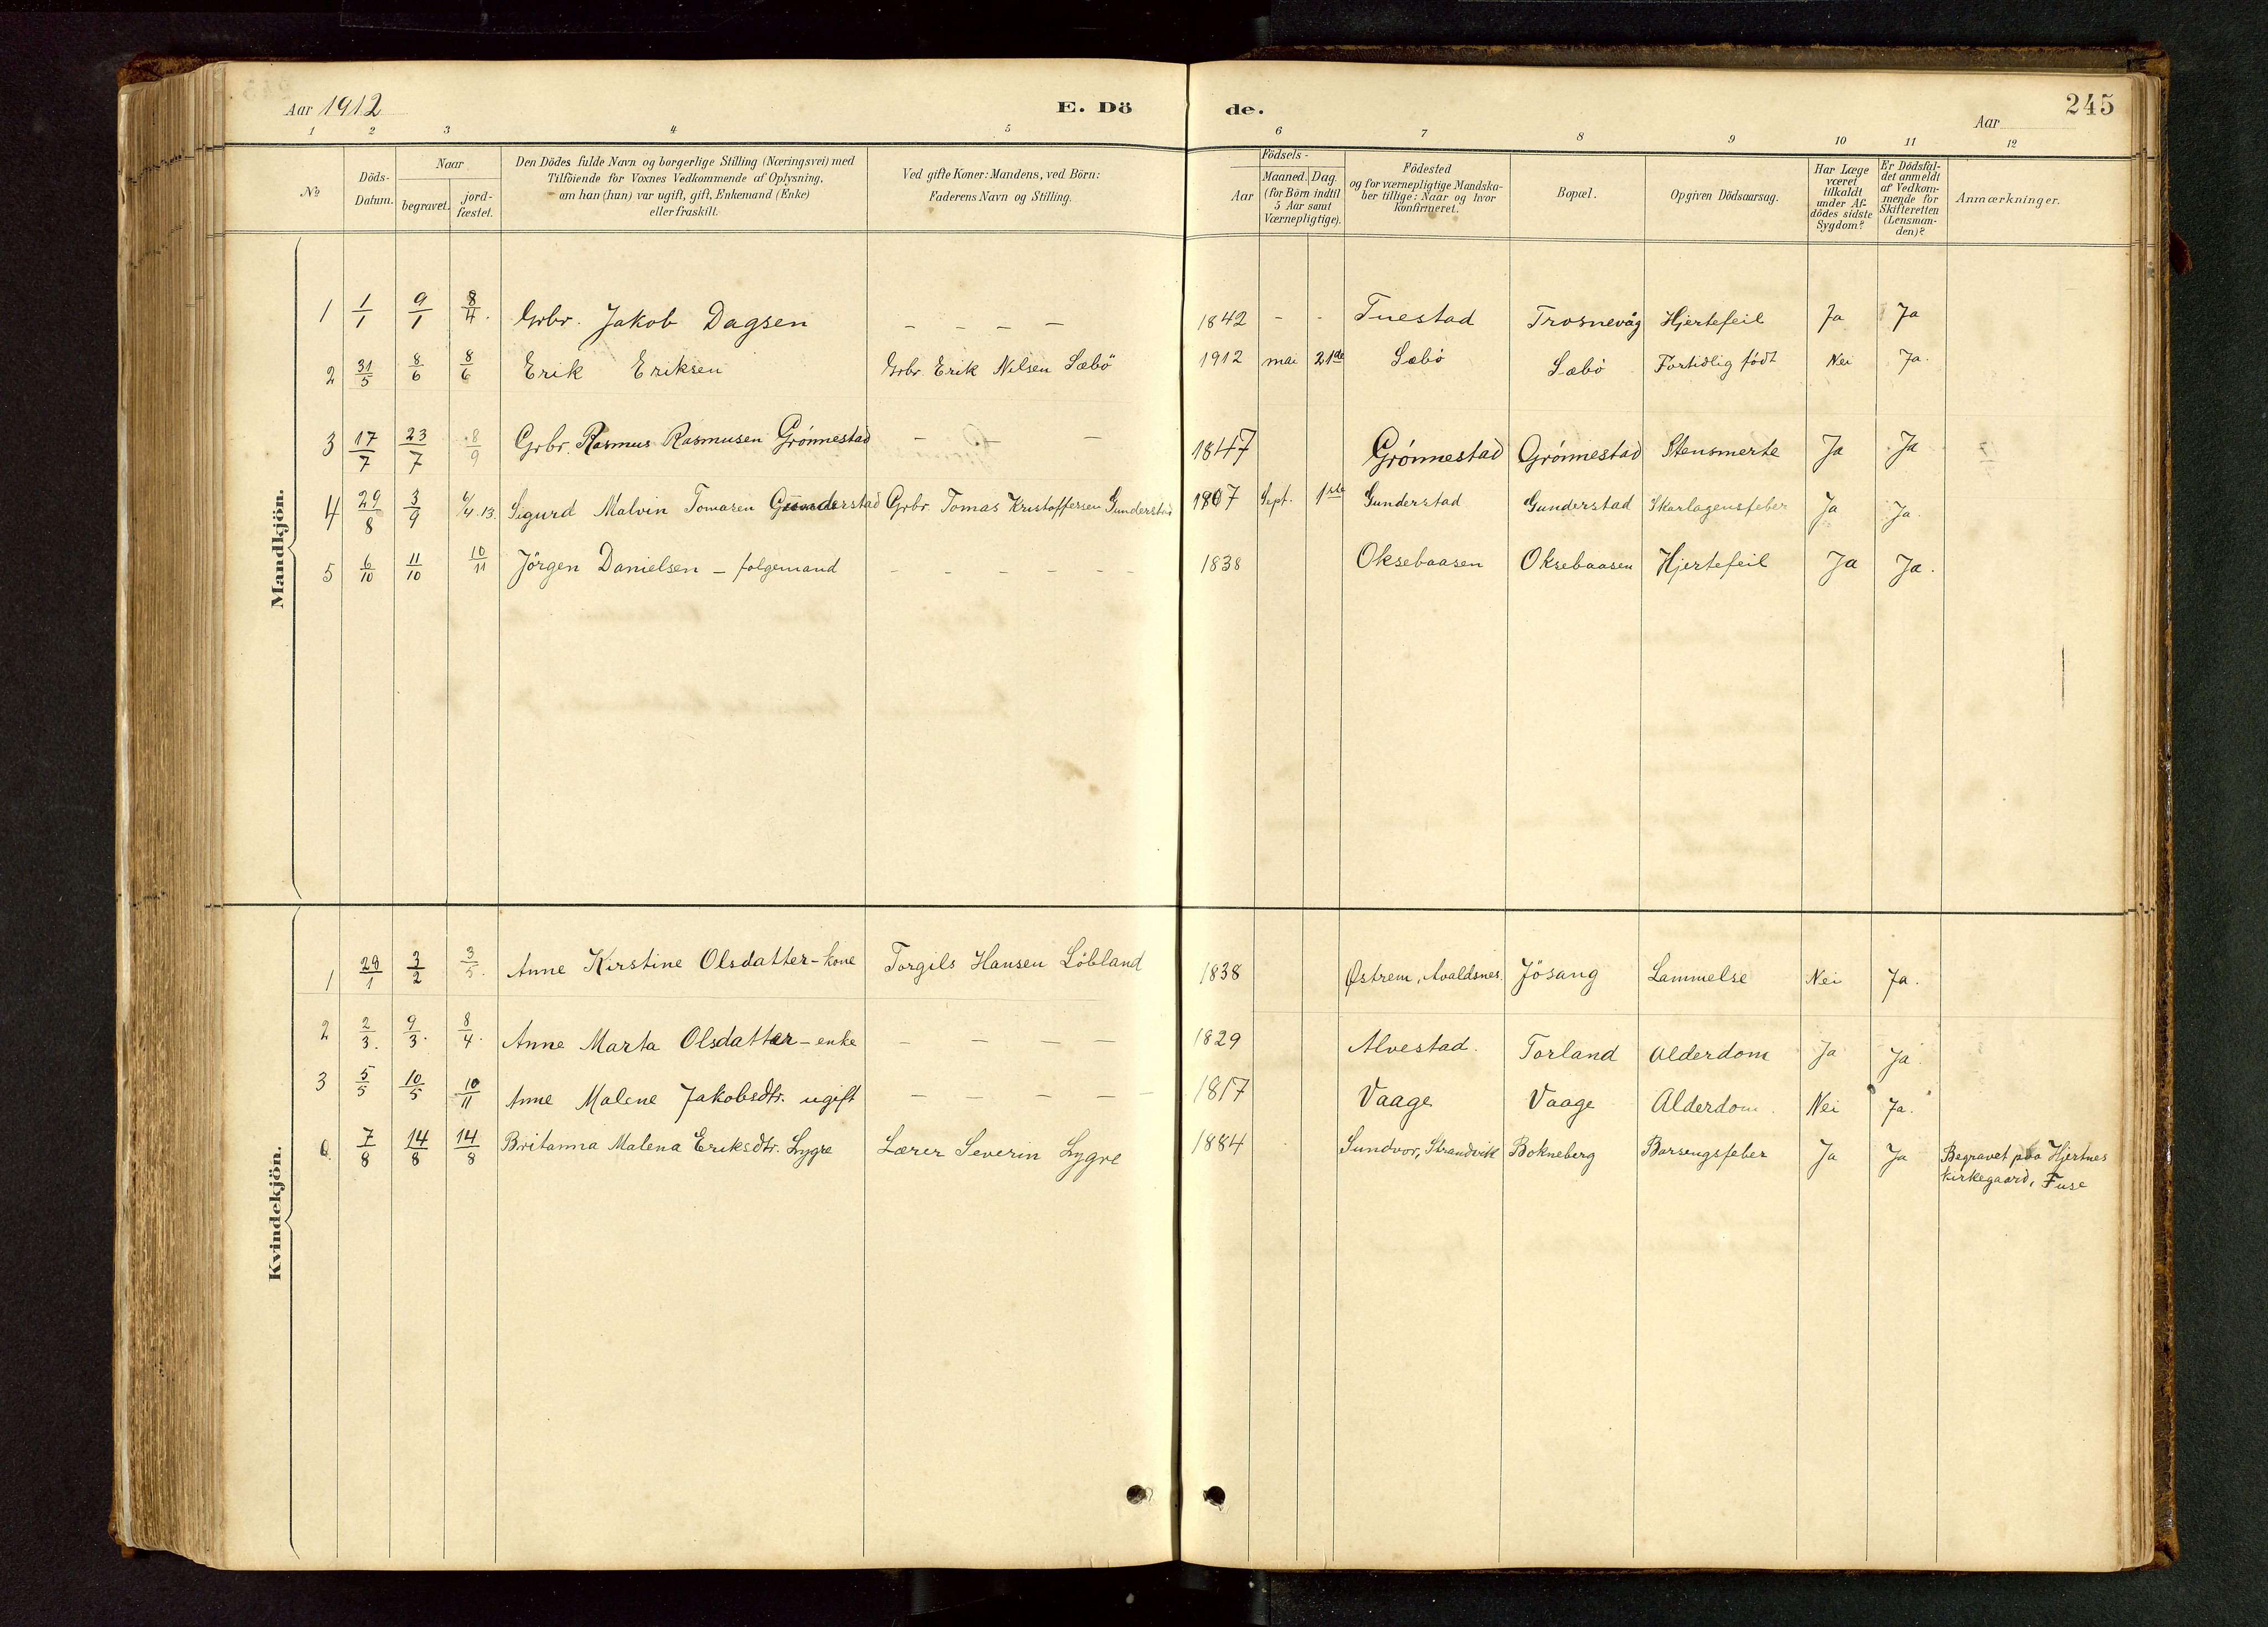 Aar 1912 E. Dö de. Aar 245
1 2 3 4 5 6 7 8 9 10 11 12
No
Döds-
Datum.
Naar
begravet.
jord-
fæstet.
Den Dödes fulde Navn og borgerlige Stilling (Næringsvei) med
Tilföiende for Voxnes Vedkommende af Oplysning,
om han (hun) var ugift, gift, Enkemand (Enke)
eller fraskilt.
Ved gifte Koner: Mandens, ved Börn:
Faderens Navn og Stilling.
Födsels-
Aar
Maaned. Dag.
(for Börn indtil
5 Aar samt
Værnepligtige).
Födested
og for værnepligtige Mandska-
ber tillige: Naar og hvor
konfirmeret.
Bopæl.
Opgiven Dödsaarsag.
Har Læge
været
tilkaldt
under Af-
dödes sidste
Sygdom?
Er Dödsfal-
det anmeldt
af Vedkom-
mende for
Skifteretten
(Lensman-
den)?
Anmærkninger.
Mandkjön.
1 1/1 9/1 8/4. Grbr. Jakob Dagsen – – – – 1842 - - Tuestad Trosnevåg Hjertefeil Ja Ja
2 31/5 8/6 8/6 Erik Eriksen Grbr. Erik Nilsen Sæbö 1912 mai 21de Sæbö Sæbö Fortidlig født Nei Ja.
3 17/7 23/7 8/9 Grbr. Rasmus Rasmusen Grönnestad – – – 1847 Grönnestad Grönnestad Stensmerte Ja Ja
4 29/8 3/9 6/4.13 Sigurd Malvin Tomasen Gunderstad Grbr. Tomas Kristoffersen Gunderstad 1907 Sept. 1ste Gunderstad Gunderstad Skarlagensfeber Ja Ja.
5 6/10 11/10 10/11 Jörgen Danielsen – folgemand – – – – – – 1838 Oksebaasen Oksebaasen Hjertefeil Ja Ja.
Kvindekjön.
1 28/1 3/2 3/5. Anne Kirstine Olsdatter – kone Torgils Hansen Löbland 1838 Østrem, Avaldsnes. Jösang Lammelse Nei Ja.
2 2/3. 9/3. 8/4. Anne Marta Olsdatter – enke – – – – 1829 Alvestad. Torland Alderdom Ja Ja.
3 5/5 10/5 10/11 Anne Malene Jakobsdtr. ugift – – – – – 1817 Vaage Vaage Alderdom. Nei Ja.
7/8 14/8 14/8 Britanna Malena Eriksdtr. Lygre Lærer Severin Lygre 1884 Sundvor, Strandvik Bokneberg Barsengsfeber Ja Ja Begravet paa Hjertnes
Kirkegaard, Fuse